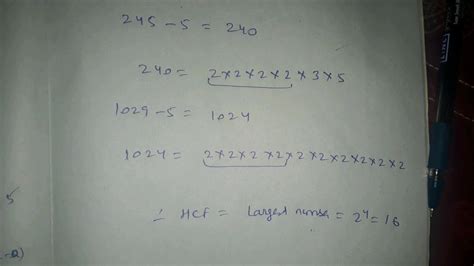 245 - 5 = 240
240 = 2×2×2×2×3×5
1029 - 5 = 1024
1024 = 2×2×2×2×2×2×2×2×2×2
5
∴ HCF = Largest = 2⁴ = 16